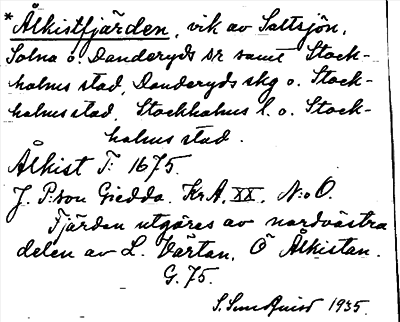 * Ålkistfjärden, vik av Saltsjön,
Solna o. Danderyds sr samt Stock-
holms stad, Danderyds skg o. Stock-
holms stad, Stockholms l. o. Stock-
holms stad.
Ålkist T: 1675.
J. P:son Giedda. KrA, XX, N:o O.
Fjärden utgöres av nordvästra
delen av L. Värtan. Ö Ålkistan.
G. 75.
S. Sundquist 1935.